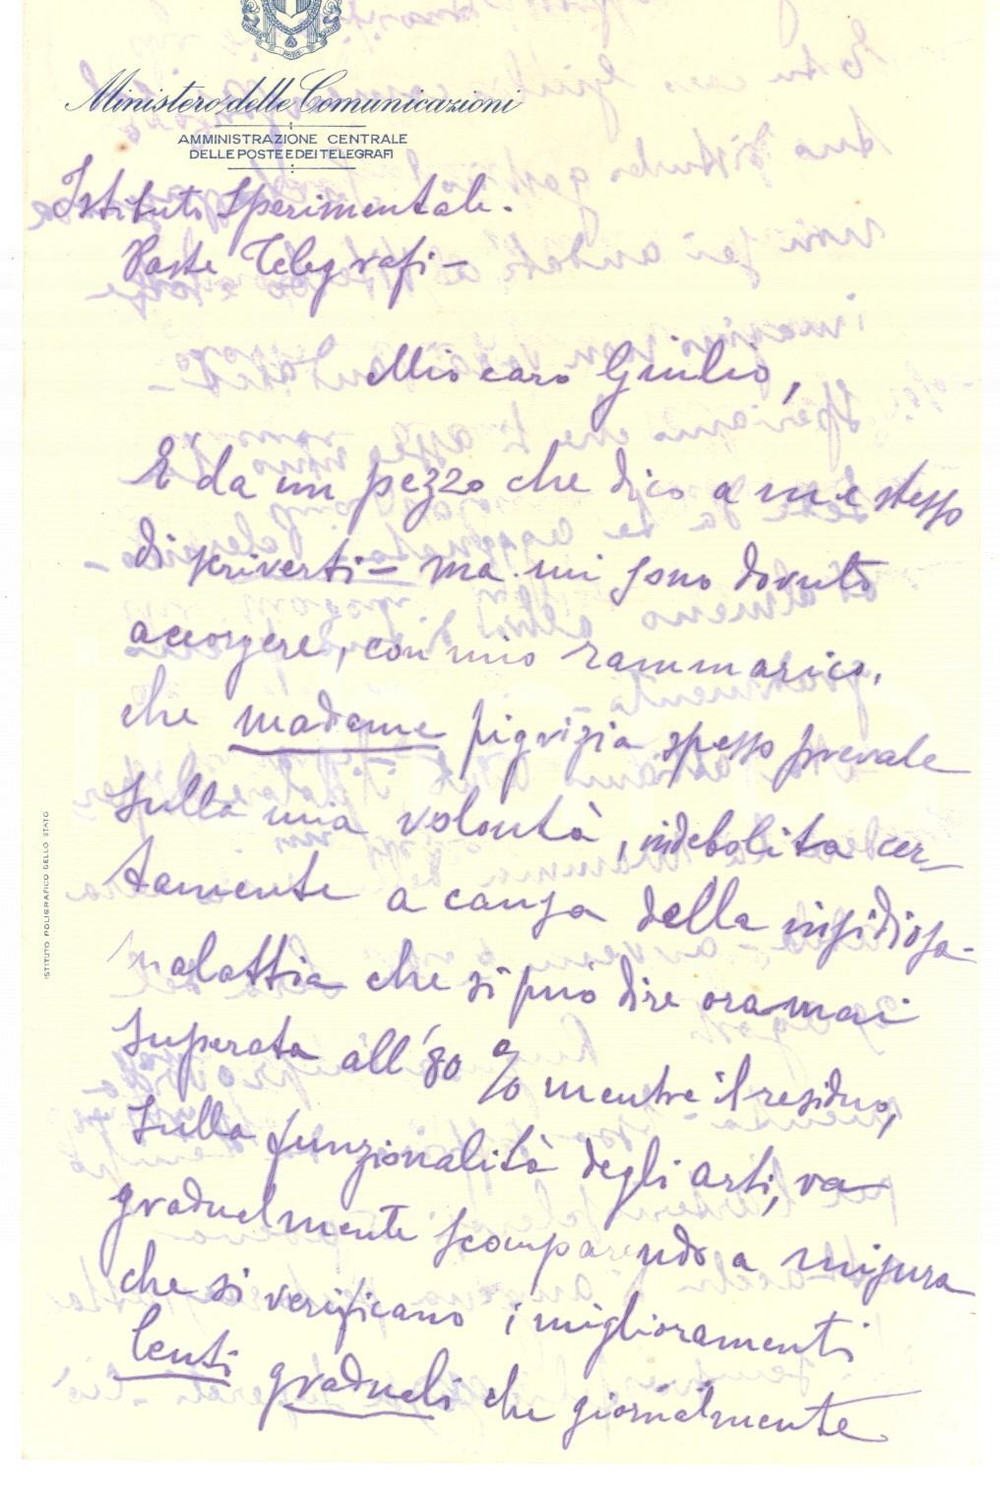 Ministero delle Comunicazioni
AMMINISTRAZIONE CENTRALE
DELLE POSTE E DEI TELEGRAFI
Istituto Sperimentale.
Poste Telegrafi -
Mio caro Giulio,
È da un pezzo che dico a me stesso
di scriverti - ma mi sono dovuto
accorgere, con mio rammarico,
che madame pigrizia spesso prevale
sulla mia volontà, indebolita cer-
tamente a causa della insidiosa
malattia che si può dire oramai
superata all'80 % mentre il residuo,
sulla funzionalità degli arti, va
gradualmente scomparendo a misura
che si verificano i miglioramenti
lenti graduali che giornalmente
ISTITUTO POLIGRAFICO DELLO STATO